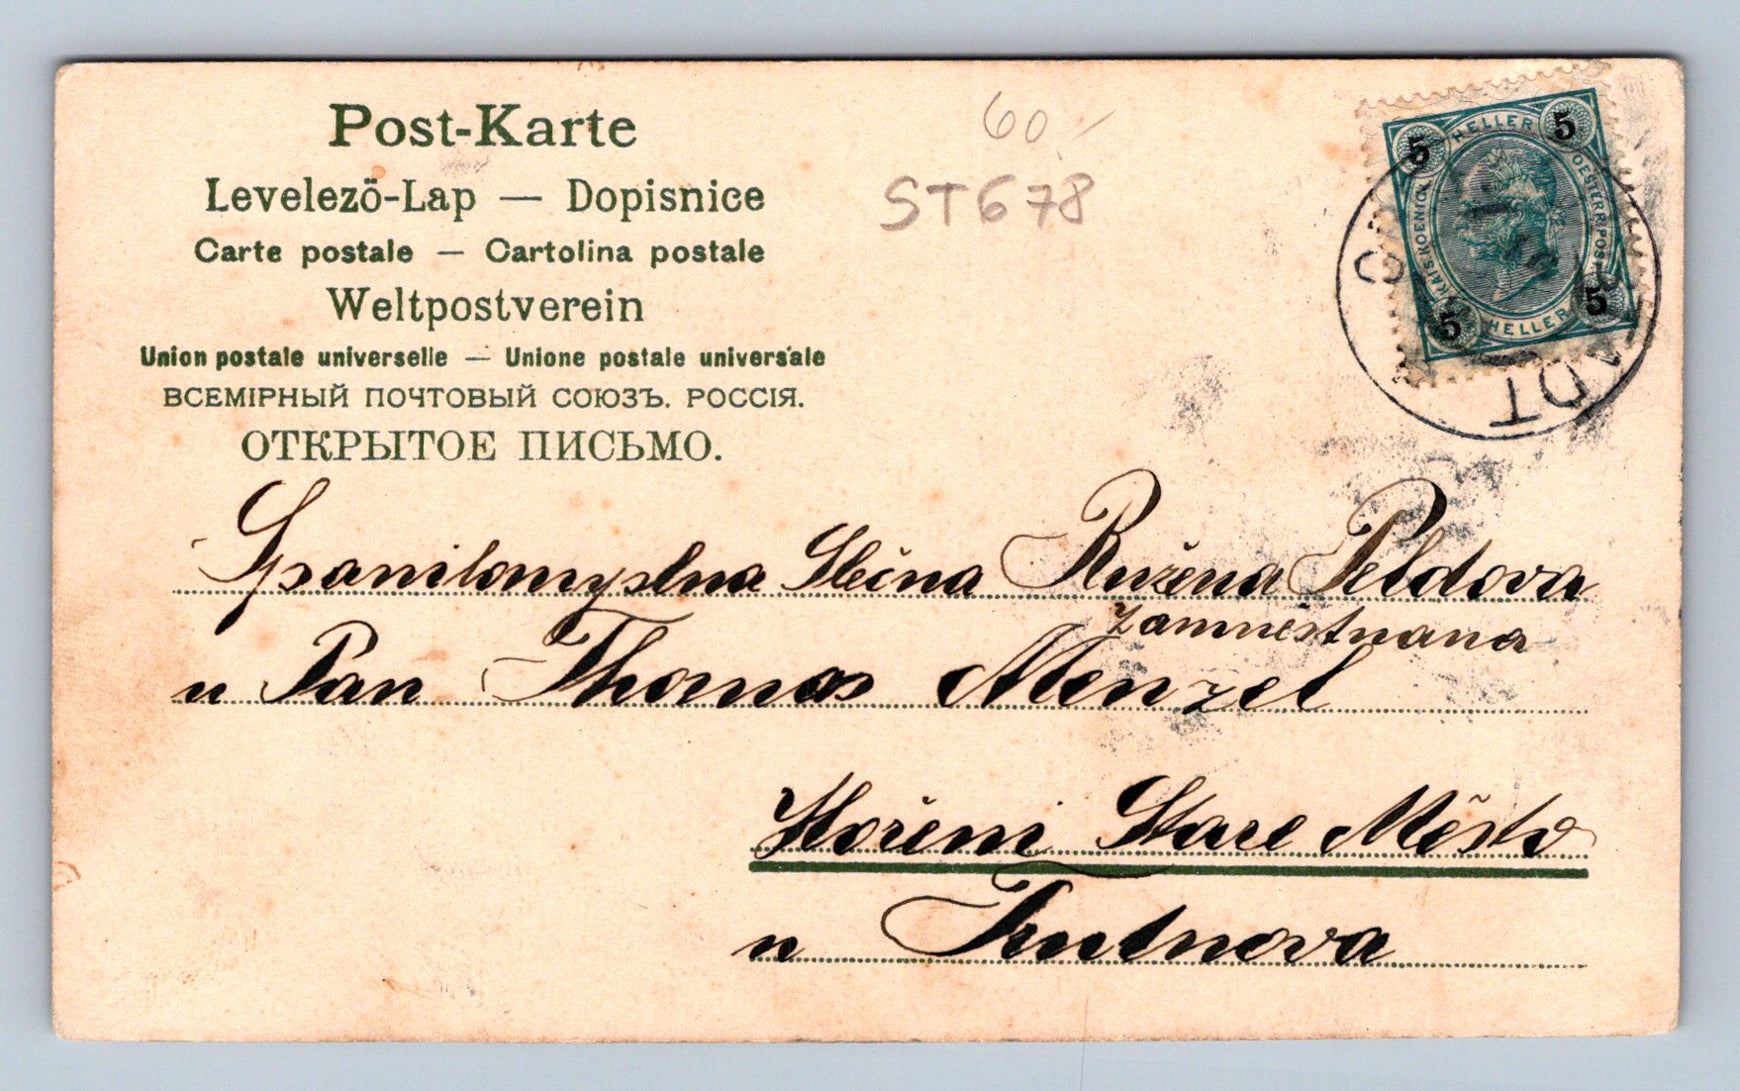 Post-Karte
Levelező-Lap — Dopisnice
Carte postale — Cartolina postale
Weltpostverein
Union postale universelle — Unione postale universale
ВСЕМІРНЫЙ ПОЧТОВЫЙ СОЮЗЪ. РОССІЯ.
ОТКРЫТОЕ ПИСЬМО.
60 /
ST678
5 HELLER 5
5 HELLER 5
DT
Spanilomyslna Slečna Ružena Peldova
zamnestnana
u Pan Thomas Menzel
Hořeni Stare Město
u Trutnova